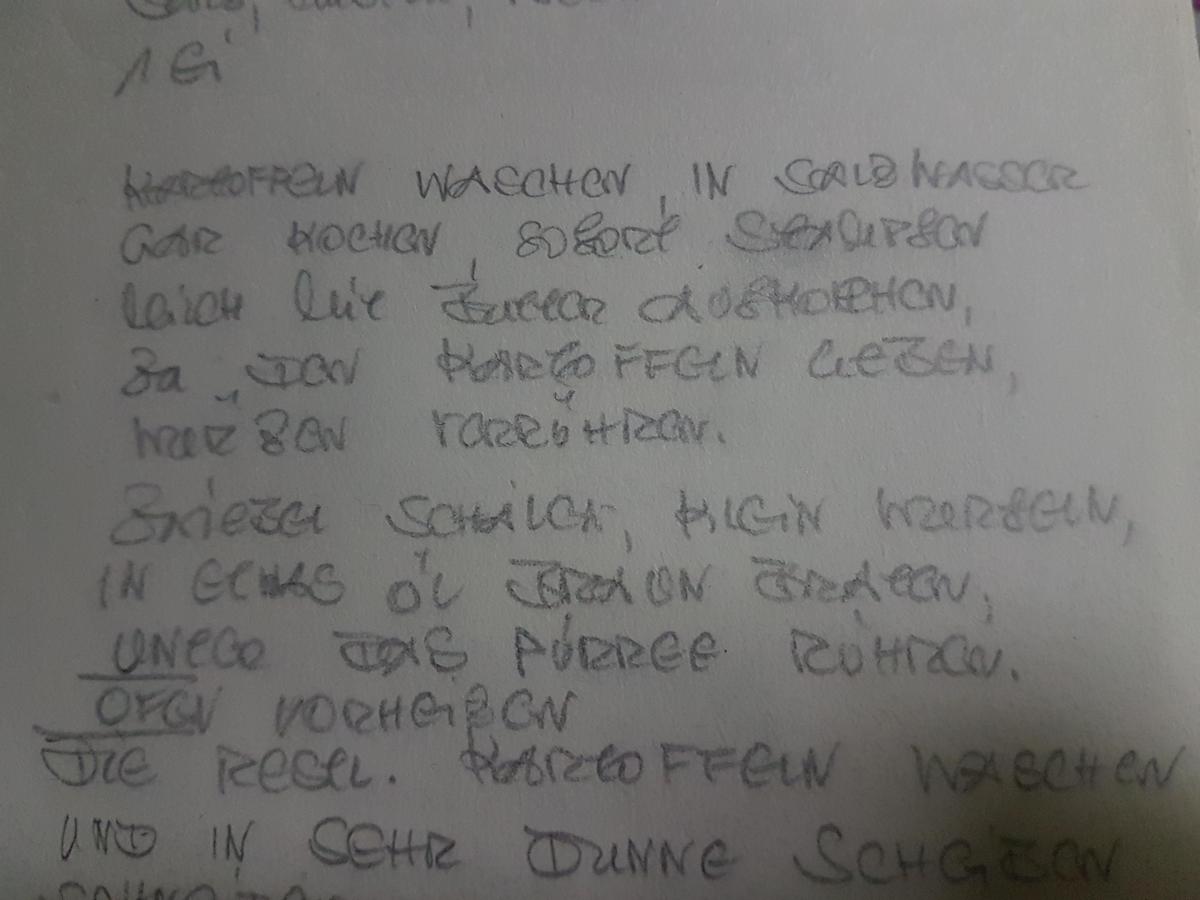 1 Ei
KARTOFFELN WASCHEN, IN SALZWASSER
GAR KOCHEN, SOFORT
MILCH MIT BUTTER AUFKOCHEN,
ZU DEN KARTOFFELN GIEßEN,
WÜRZEN VERRÜHREN.
ZWIEBEL SCHÄLEN, KLEIN WÜRFELN,
IN ETWAS ÖL BRAUN BRATEN,
UNTER DAS PÜRREE RÜHREN.
OFEN VORHEIZEN
DIE RESTL. KARTOFFELN WASCHEN
UND IN SEHR DÜNNE SCHEIBEN